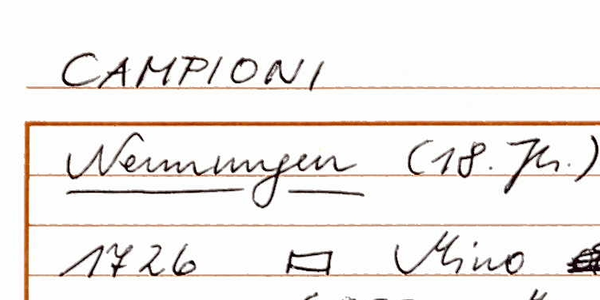 CAMPIONI
Nennungen (18. Jh.)
1726 Mino